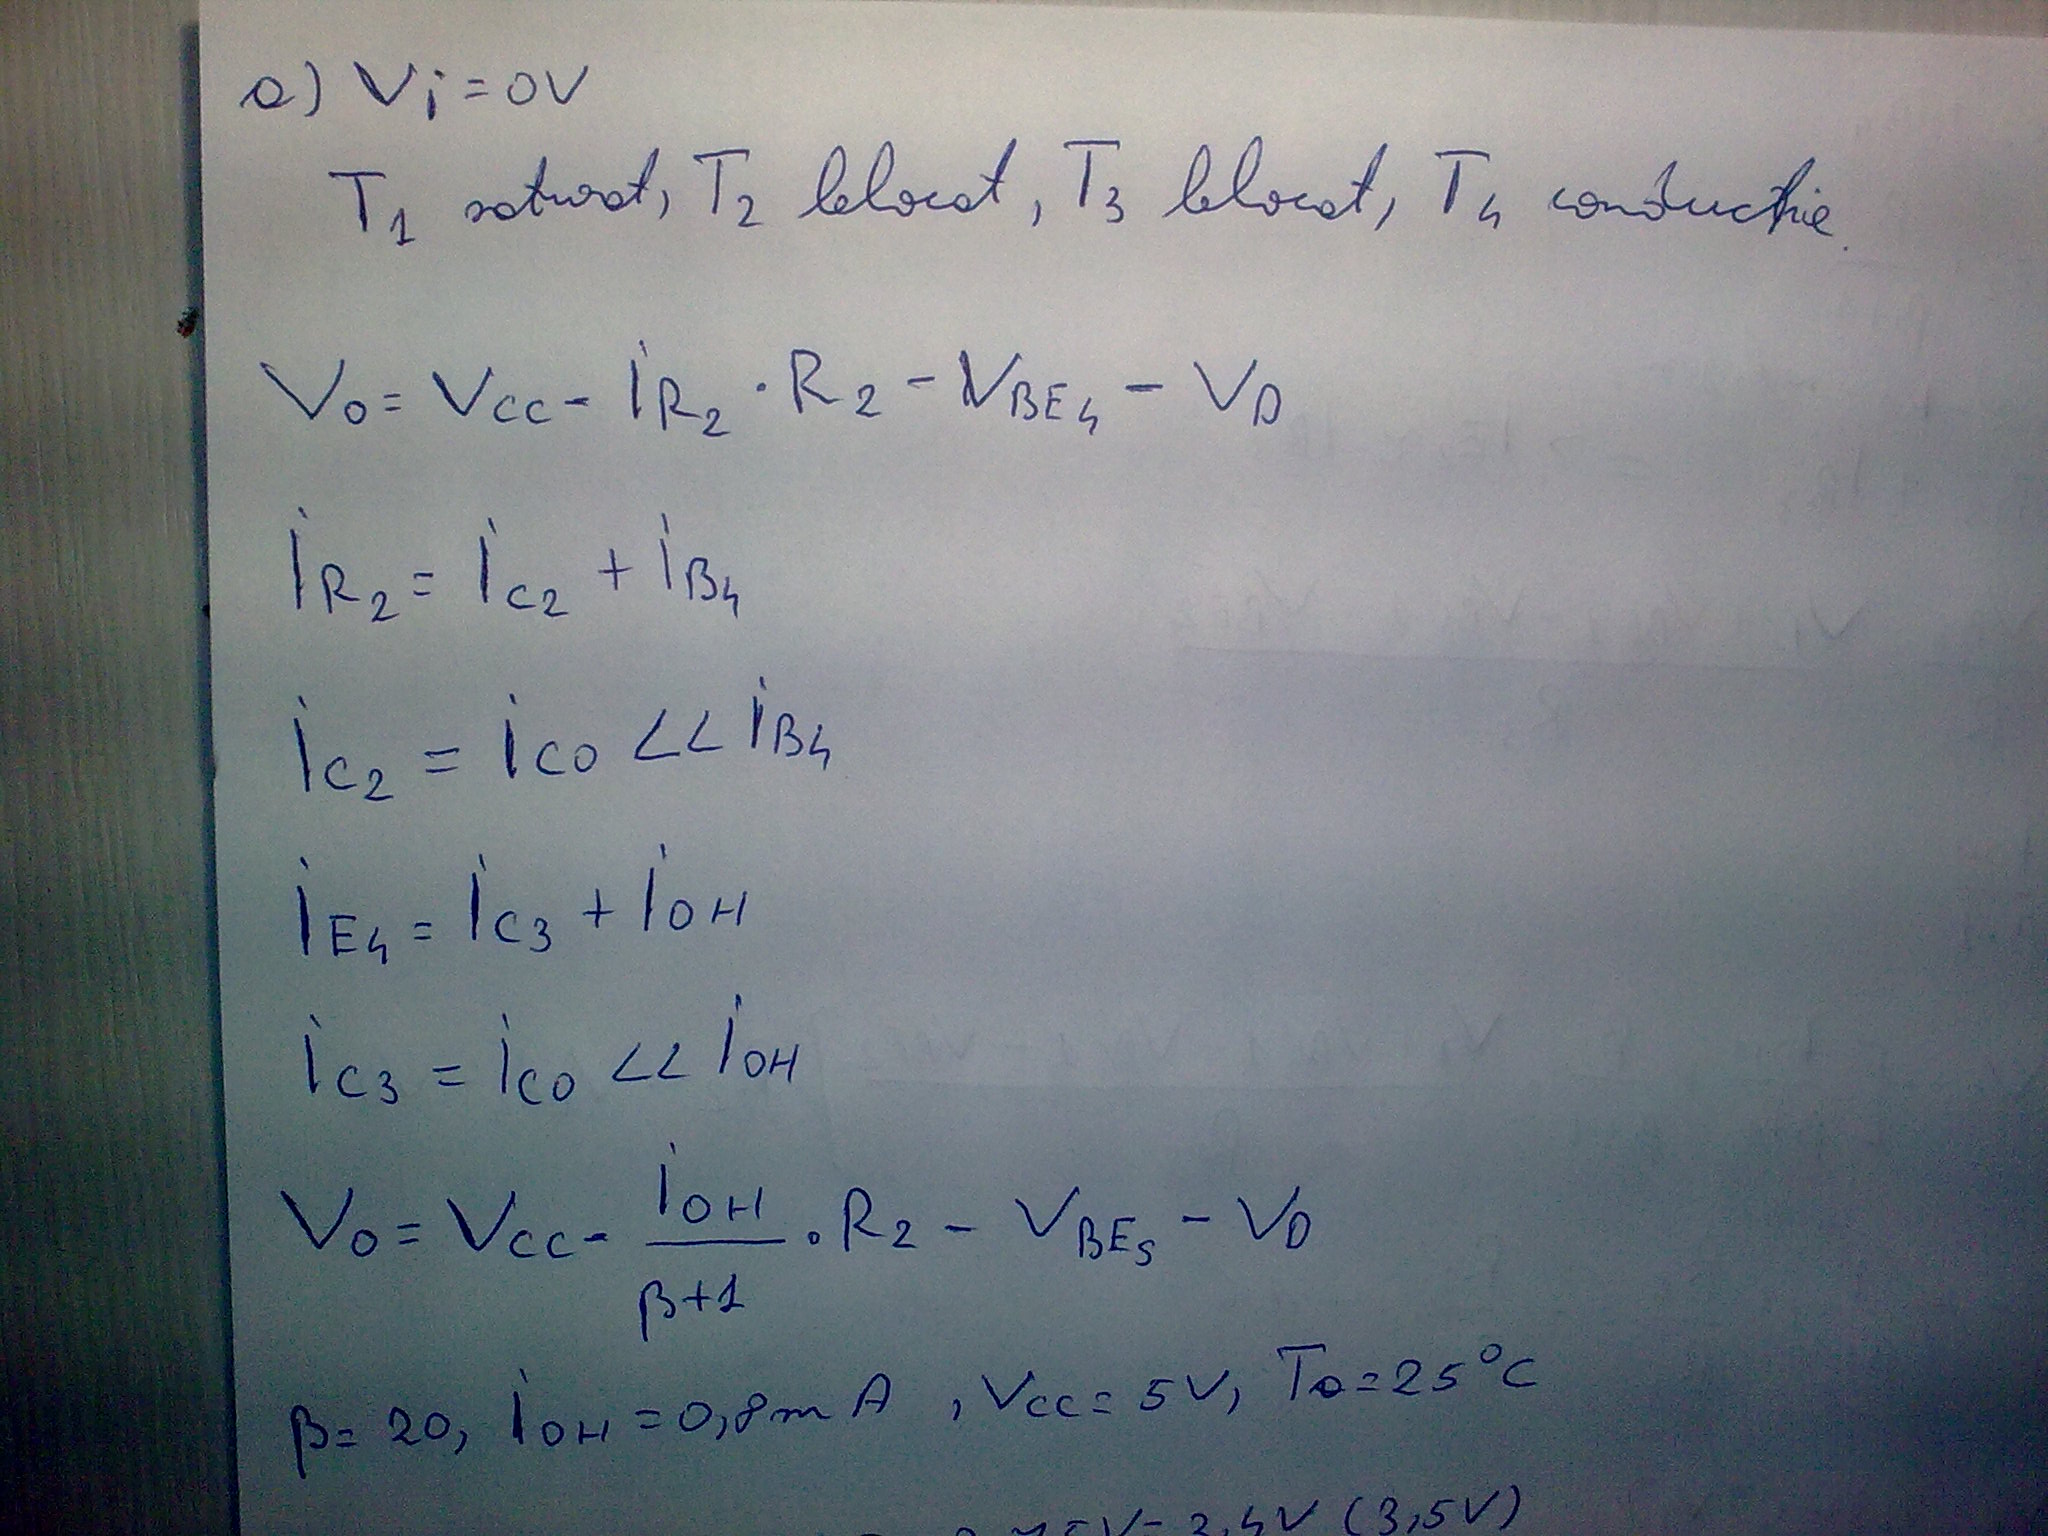 a) Vi=0V
T1 saturat, T2 blocat, T3 blocat, T4 conductie.
V0 = VCC - iR2 · R2 - VBE4 - VD
iR2 = iC2 + iB4
iC2 = iC0 << iB4
iE4 = iC3 + iOH
iC3 = iC0 << iOH
V0 = VCC - iOH/β+1 · R2 - VBE5 - VD
β = 20, iOH = 0,8mA, VCC = 5V, Ta = 25°C
75V = 3,4V (3,5V)